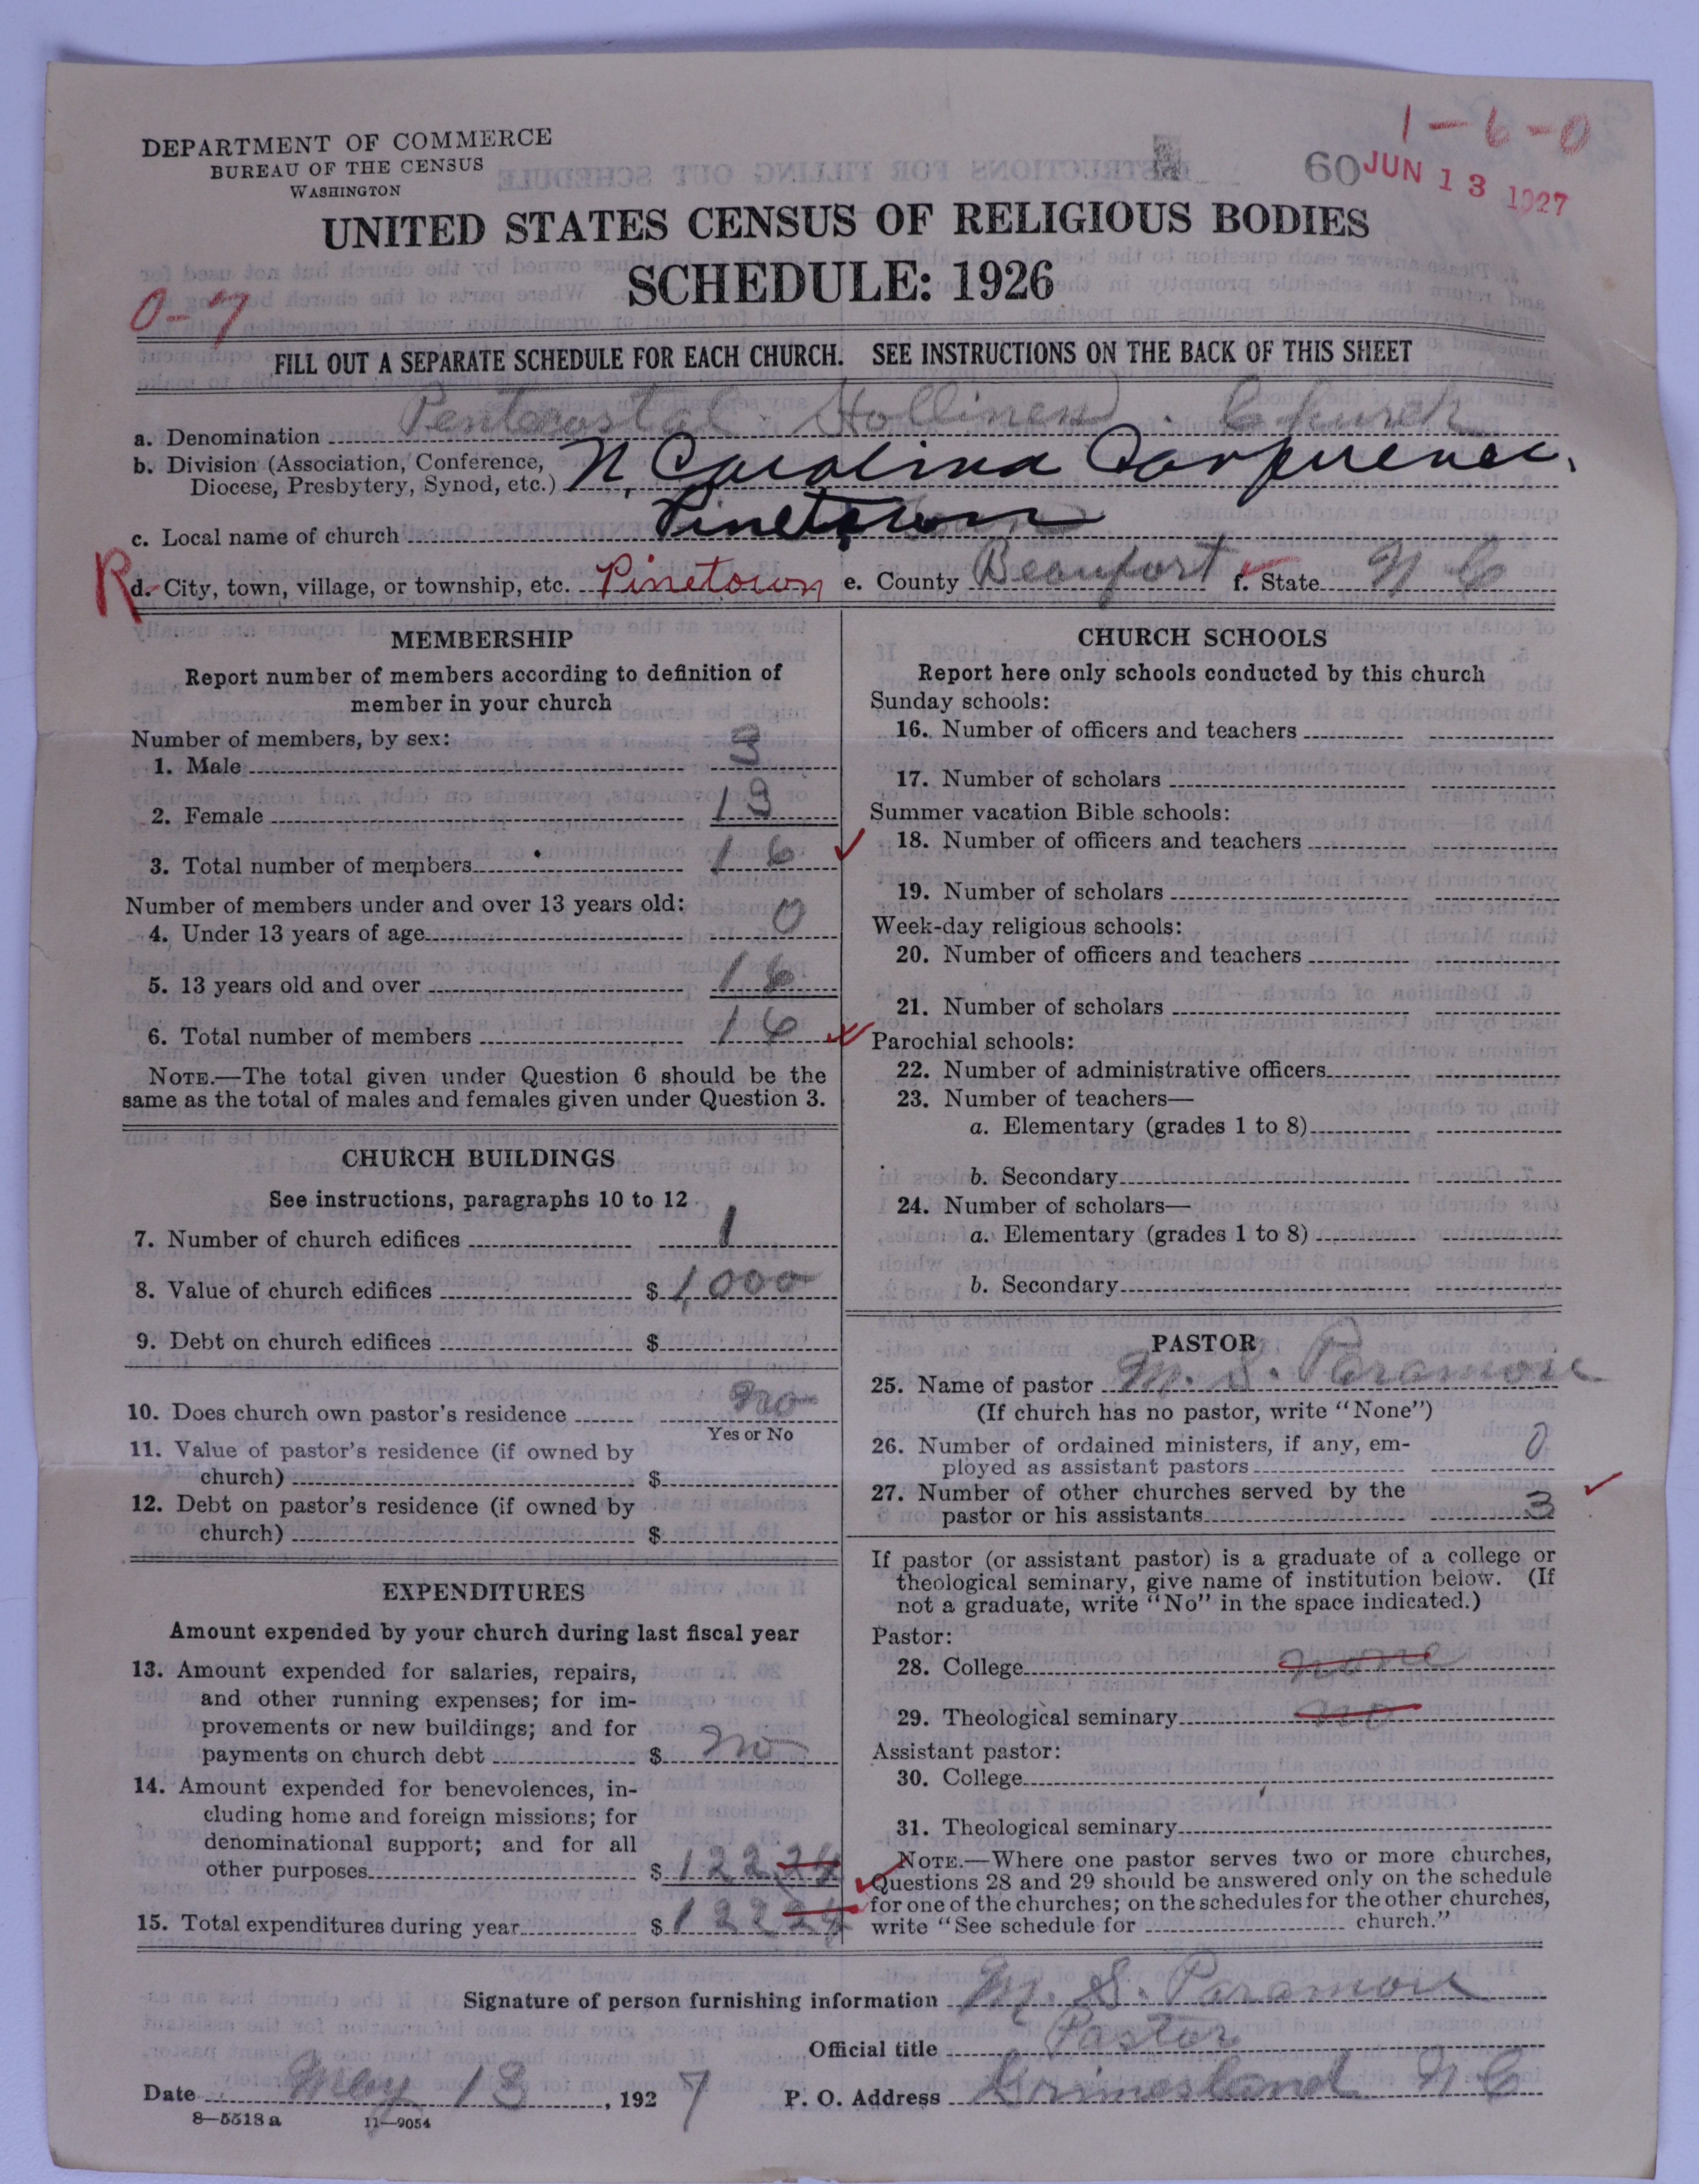 1-6-0
DEPARTMENT OF COMMERCE
BUREAU OF THE CENSUS
WASHINGTON
60 JUN 13 1927
UNITED STATES CENSUS OF RELIGIOUS BODIES
SCHEDULE: 1926
0-7
FILL OUT A SEPARATE SCHEDULE FOR EACH CHURCH. SEE INSTRUCTIONS ON THE BACK OF THIS SHEET
a. Denomination Pentecostal Hollines Church
b. Division (Association, Conference,
Diocese, Presbytery, Synod, etc.) N. Carolina Conference.
c. Local name of church Pinetown
R d. City, town, village, or township, etc. Pinetown e. County Beaufort f. State N C
MEMBERSHIP
Report number of members according to definition of
member in your church
Number of members, by sex:
1. Male 3
2. Female 13
3. Total number of members 16
Number of members under and over 13 years old:
4. Under 13 years of age 0
5. 13 years old and over 16
6. Total number of members 16
NOTE.—The total given under Question 6 should be the
same as the total of males and females given under Question 3.
CHURCH BUILDINGS
See instructions, paragraphs 10 to 12
7. Number of church edifices 1
8. Value of church edifices $ 1,000
9. Debt on church edifices $
10. Does church own pastor's residence no
Yes or No
11. Value of pastor's residence (if owned by
church) $
12. Debt on pastor's residence (if owned by
church) $
EXPENDITURES
Amount expended by your church during last fiscal year
13. Amount expended for salaries, repairs,
and other running expenses; for im-
provements or new buildings; and for
payments on church debt $ no
14. Amount expended for benevolences, in-
cluding home and foreign missions; for
denominational support; and for all
other purposes $ 122 24
15. Total expenditures during year $ 122 24
CHURCH SCHOOLS
Report here only schools conducted by this church
Sunday schools:
16. Number of officers and teachers
17. Number of scholars
Summer vacation Bible schools:
18. Number of officers and teachers
19. Number of scholars
Week-day religious schools:
20. Number of officers and teachers
21. Number of scholars
Parochial schools:
22. Number of administrative officers
23. Number of teachers—
a. Elementary (grades 1 to 8)
b. Secondary
24. Number of scholars—
a. Elementary (grades 1 to 8)
b. Secondary
PASTOR
25. Name of pastor M. S. Paramore
(If church has no pastor, write "None")
26. Number of ordained ministers, if any, em-
ployed as assistant pastors 0
27. Number of other churches served by the
pastor or his assistants 3
If pastor (or assistant pastor) is a graduate of a college or
theological seminary, give name of institution below. (If
not a graduate, write "No" in the space indicated.)
Pastor:
28. College none
29. Theological seminary no
Assistant pastor:
30. College
31. Theological seminary
NOTE.—Where one pastor serves two or more churches,
Questions 28 and 29 should be answered only on the schedule
for one of the churches; on the schedules for the other churches,
write "See schedule for church."
Signature of person furnishing information M. S. Paramore
Official title Pastor
Date May 13, 1927 P. O. Address Grimesland N C
8—5518 a 11—9054